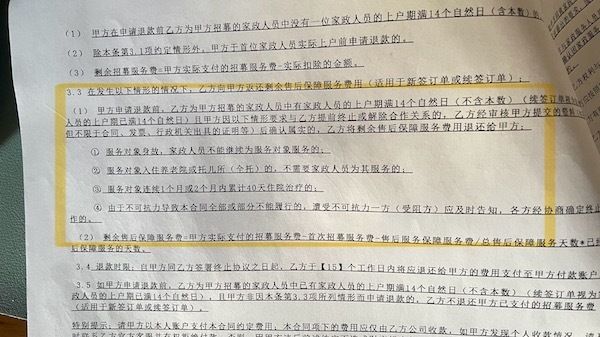 (1) 甲方在申请退款前乙方为甲方招募的家政人员中没有一位家政人员的上户期满14个自然日(含本数)的。
(2) 除本条第3.1项约定情形外，甲方于首位家政人员实际上户前申请退款的。
(3) 剩余招募服务费=甲方实际支付的招募服务费-实际扣除的金额。
3.3 在发生以下情形的情况下，乙方向甲方返还剩余售后保障服务费用(适用于新签订单或续签订单)：
(1) 甲方申请退款前，乙方为甲方招募的家政人员中有家政人员的上户期满14个自然日(不含本数)(续签订单视为
人员的上户期已满14个自然日)且甲方因以下情形要求与乙方提前终止或解除合作关系的，乙方经审核甲方提交的
但不限于合同、发票、行政机关出具的证明等)后确认属实的，乙方将剩余售后保障服务费用退还给甲方：
① 服务对象身故，家政人员不能继续为服务对象服务的；
② 服务对象入住养老院或托儿所(全托)的，不需要家政人员为其服务的；
③ 服务对象连续1个月或2个月内累计40天住院治疗的；
④ 由于不可抗力导致本合同全部或部分不能履行的，遭受不可抗力一方(受阻方)应及时告知，各方经协商确定终止
作的。
(2) 剩余售后保障服务费=甲方实际支付的招募服务费-首次招募服务费-售后服务保障服务费/总售后保障服务天数*已
后保障服务的天数。
3.4 退款时限：自甲方同乙方签署终止协议之日起，乙方于【15】个工作日内将应退还给甲方的费用支付至甲方付款账户
3.5 如甲方申请退款前，乙方为甲方招募的家政人员中已有家政人员的上户期满14个自然日(不含本数)(续签订单视为
政人员的上户期已满14个自然日)，且甲方非因本条第3.3项所列情形而申请退款的，乙方不退还甲方已支付的招募服务费
(适用于新签订单或续签订单)。
特别提示：请甲方以本人账户支付本合同约定费用，本合同项下的费用应仅由乙方公司收款，如甲方发现个人收款情况，